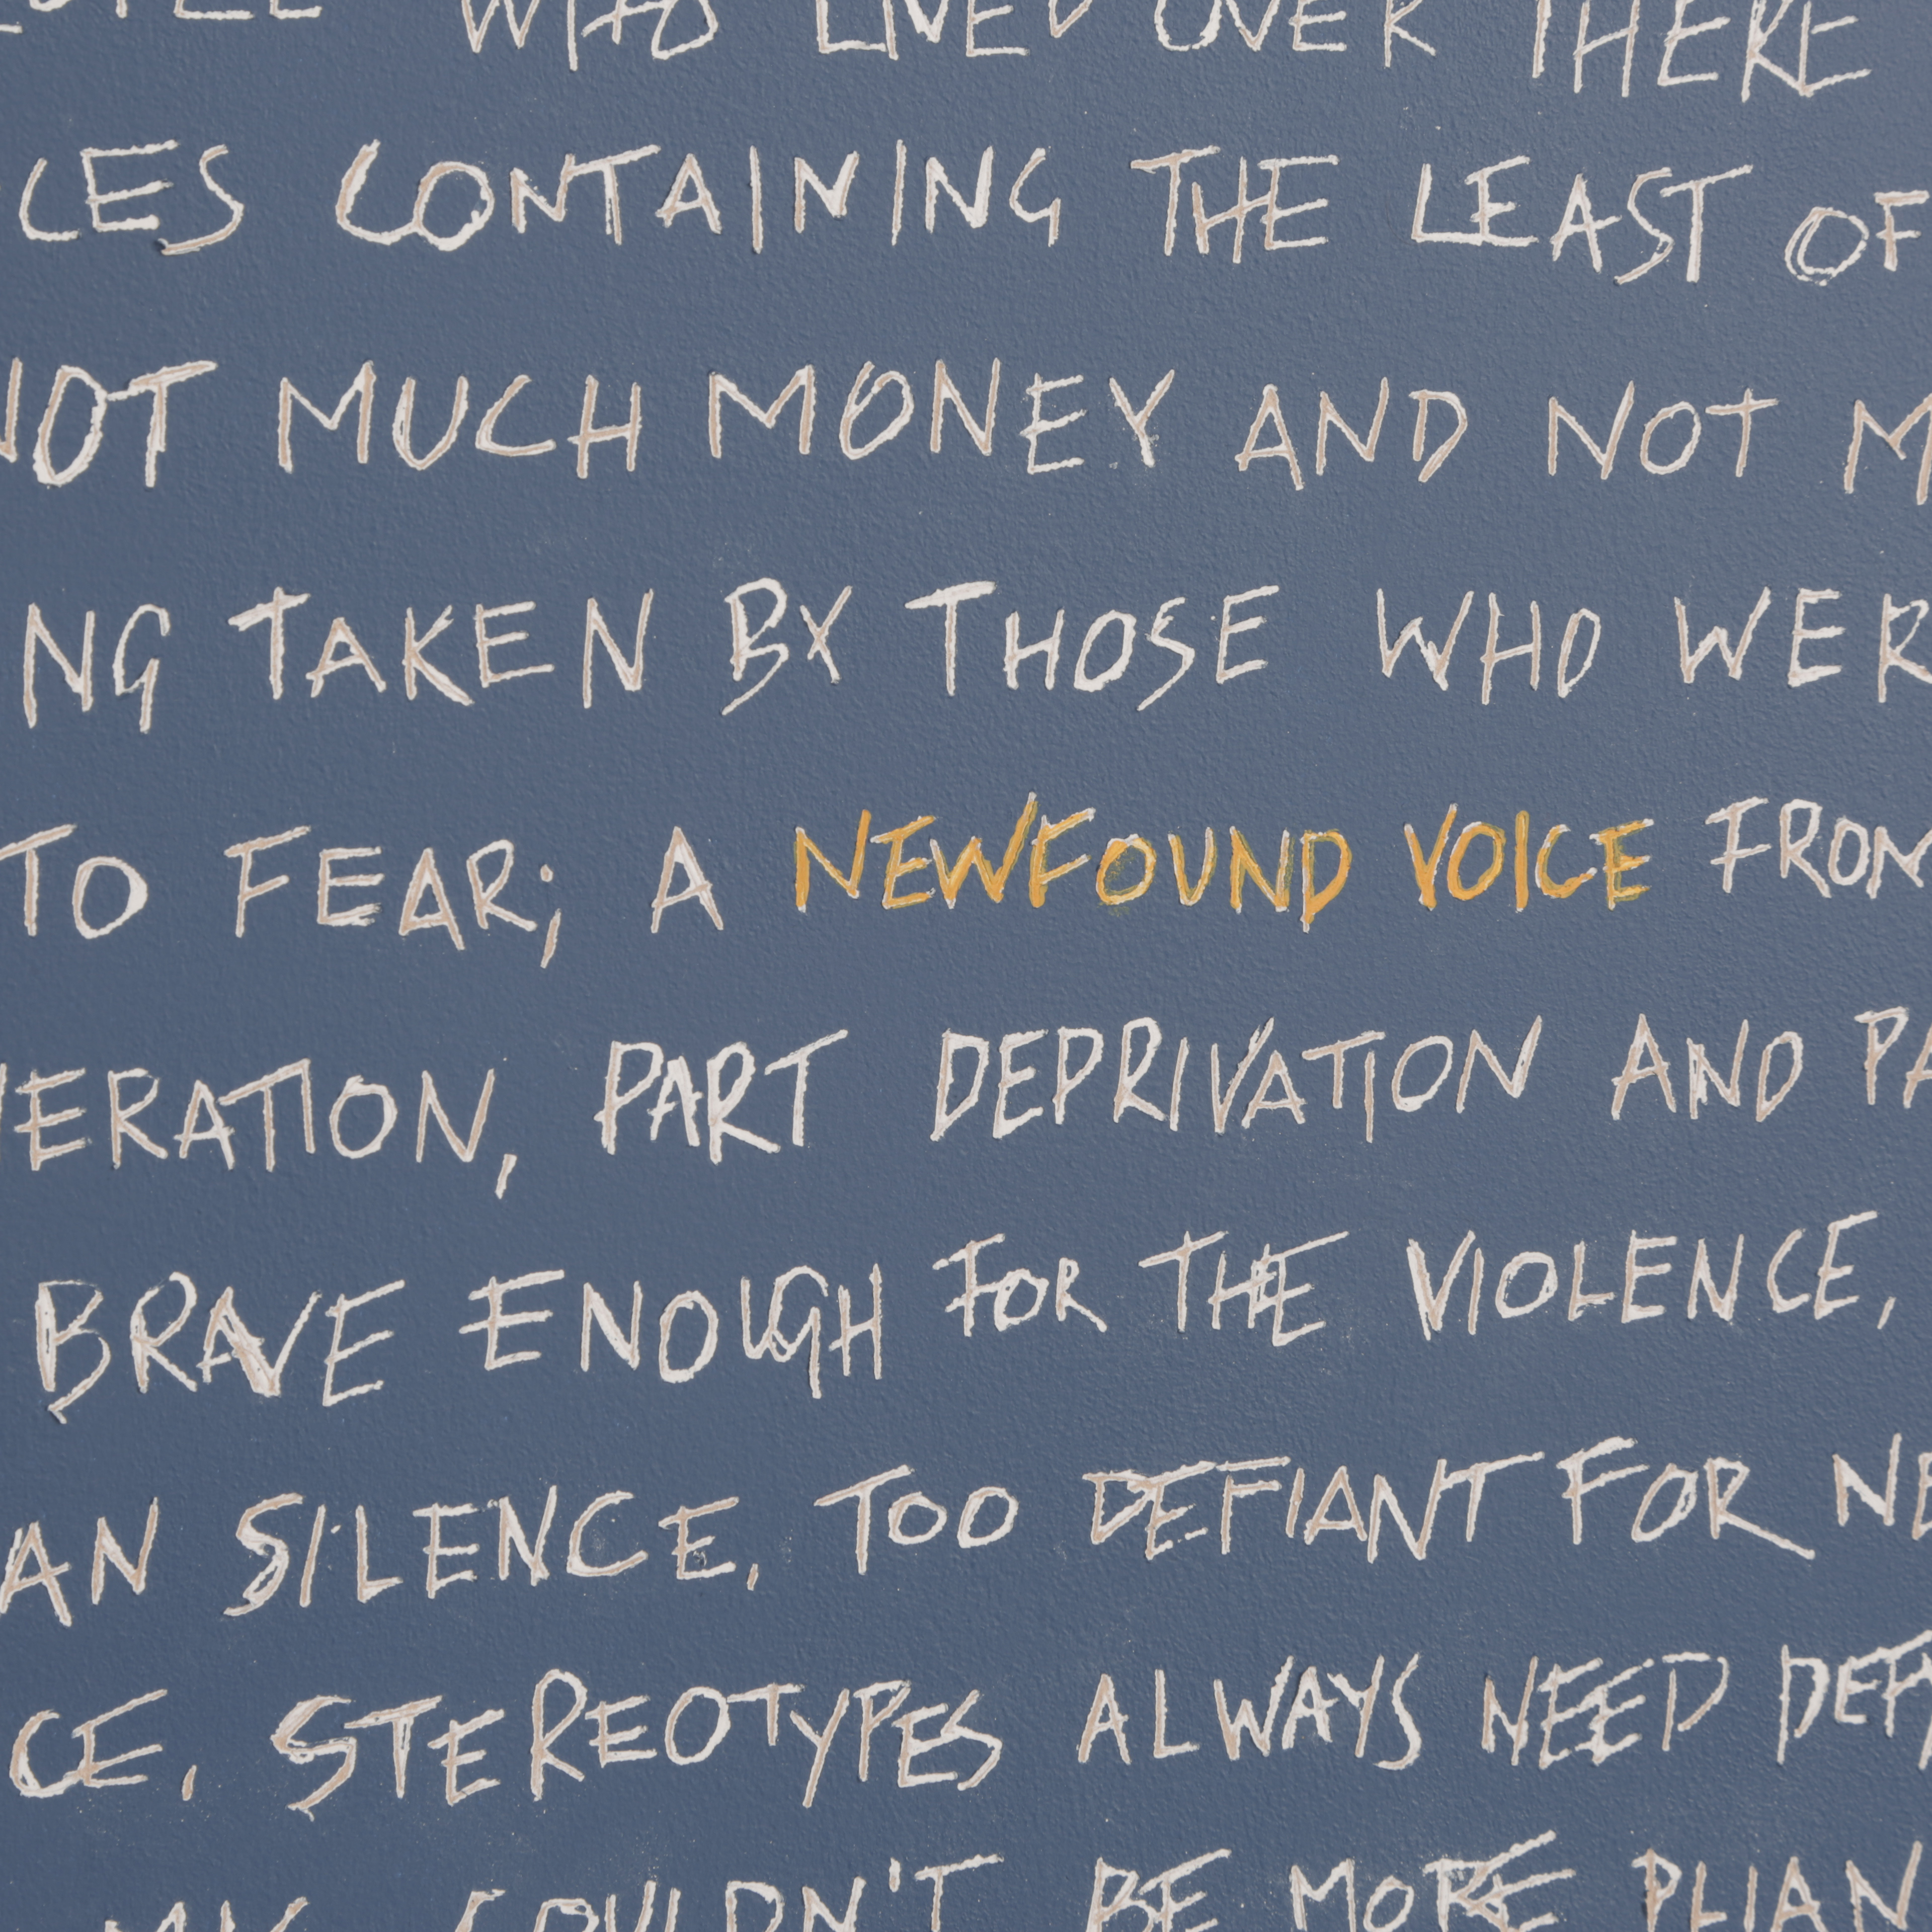 WHO LIVED OVER THERE
CES CONTAINING THE LEAST OF
NOT MUCH MONEY AND NOT M
NG TAKEN BY THOSE WHO WER
TO FEAR; A NEWFOUND VOICE FROM
ERATION, PART DEPRIVATION AND PA
BRAVE ENOUGH FOR THE VIOLENCE,
AN SILENCE, TOO DEFIANT FOR NE
CE, STEREOTYPES ALWAYS NEED DEF
COULDN'T BE MORE PLIAN